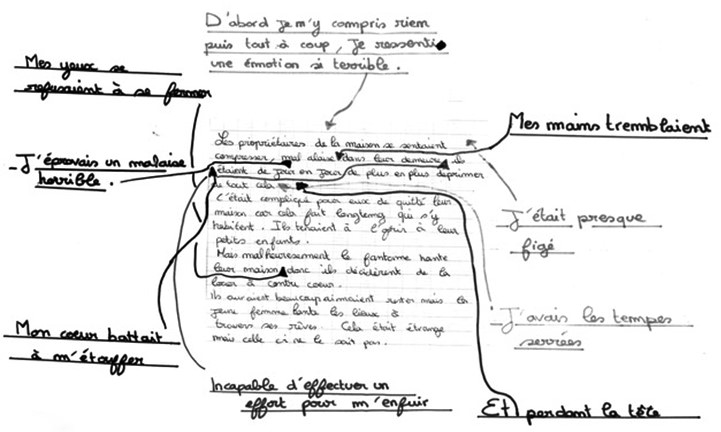 D'abord Je m'y compris riem
puis tout à coup, Je ressentis
une émotion si terrible.
Mes yeux se
refusaient à se fermer
Mes mains tremblaient
J'éprovais un malaise
horrible.
Les propriétaires de la maison se sentaient
compresser, mal alaise dans leur demeure, ils
étaient de Jour en Jour de plus en plus déprimer
de tout cela
C'était compliqué pour eux de quitté leur
maison car cela fait longtemp qui s'y
habitent. Ils tenaient à l'offrir à leur
petits enfants.
Mais malheuresement le fantome hante
leur maison donc ils décidèrent de la
louer à contre coeur.
Ils auraient beaucoup aimaient rester mais la
jeune femme hante les lieux à
travers ses rêves. Cela était étrange
mais celle ci ne le sait pas.
J'était presque
figé
J'avais les tempes
serrées
Mon coeur battait
à m'étouffer
Incapable d'effectuer un
effort pour m'enfuir
Et perdant la tête